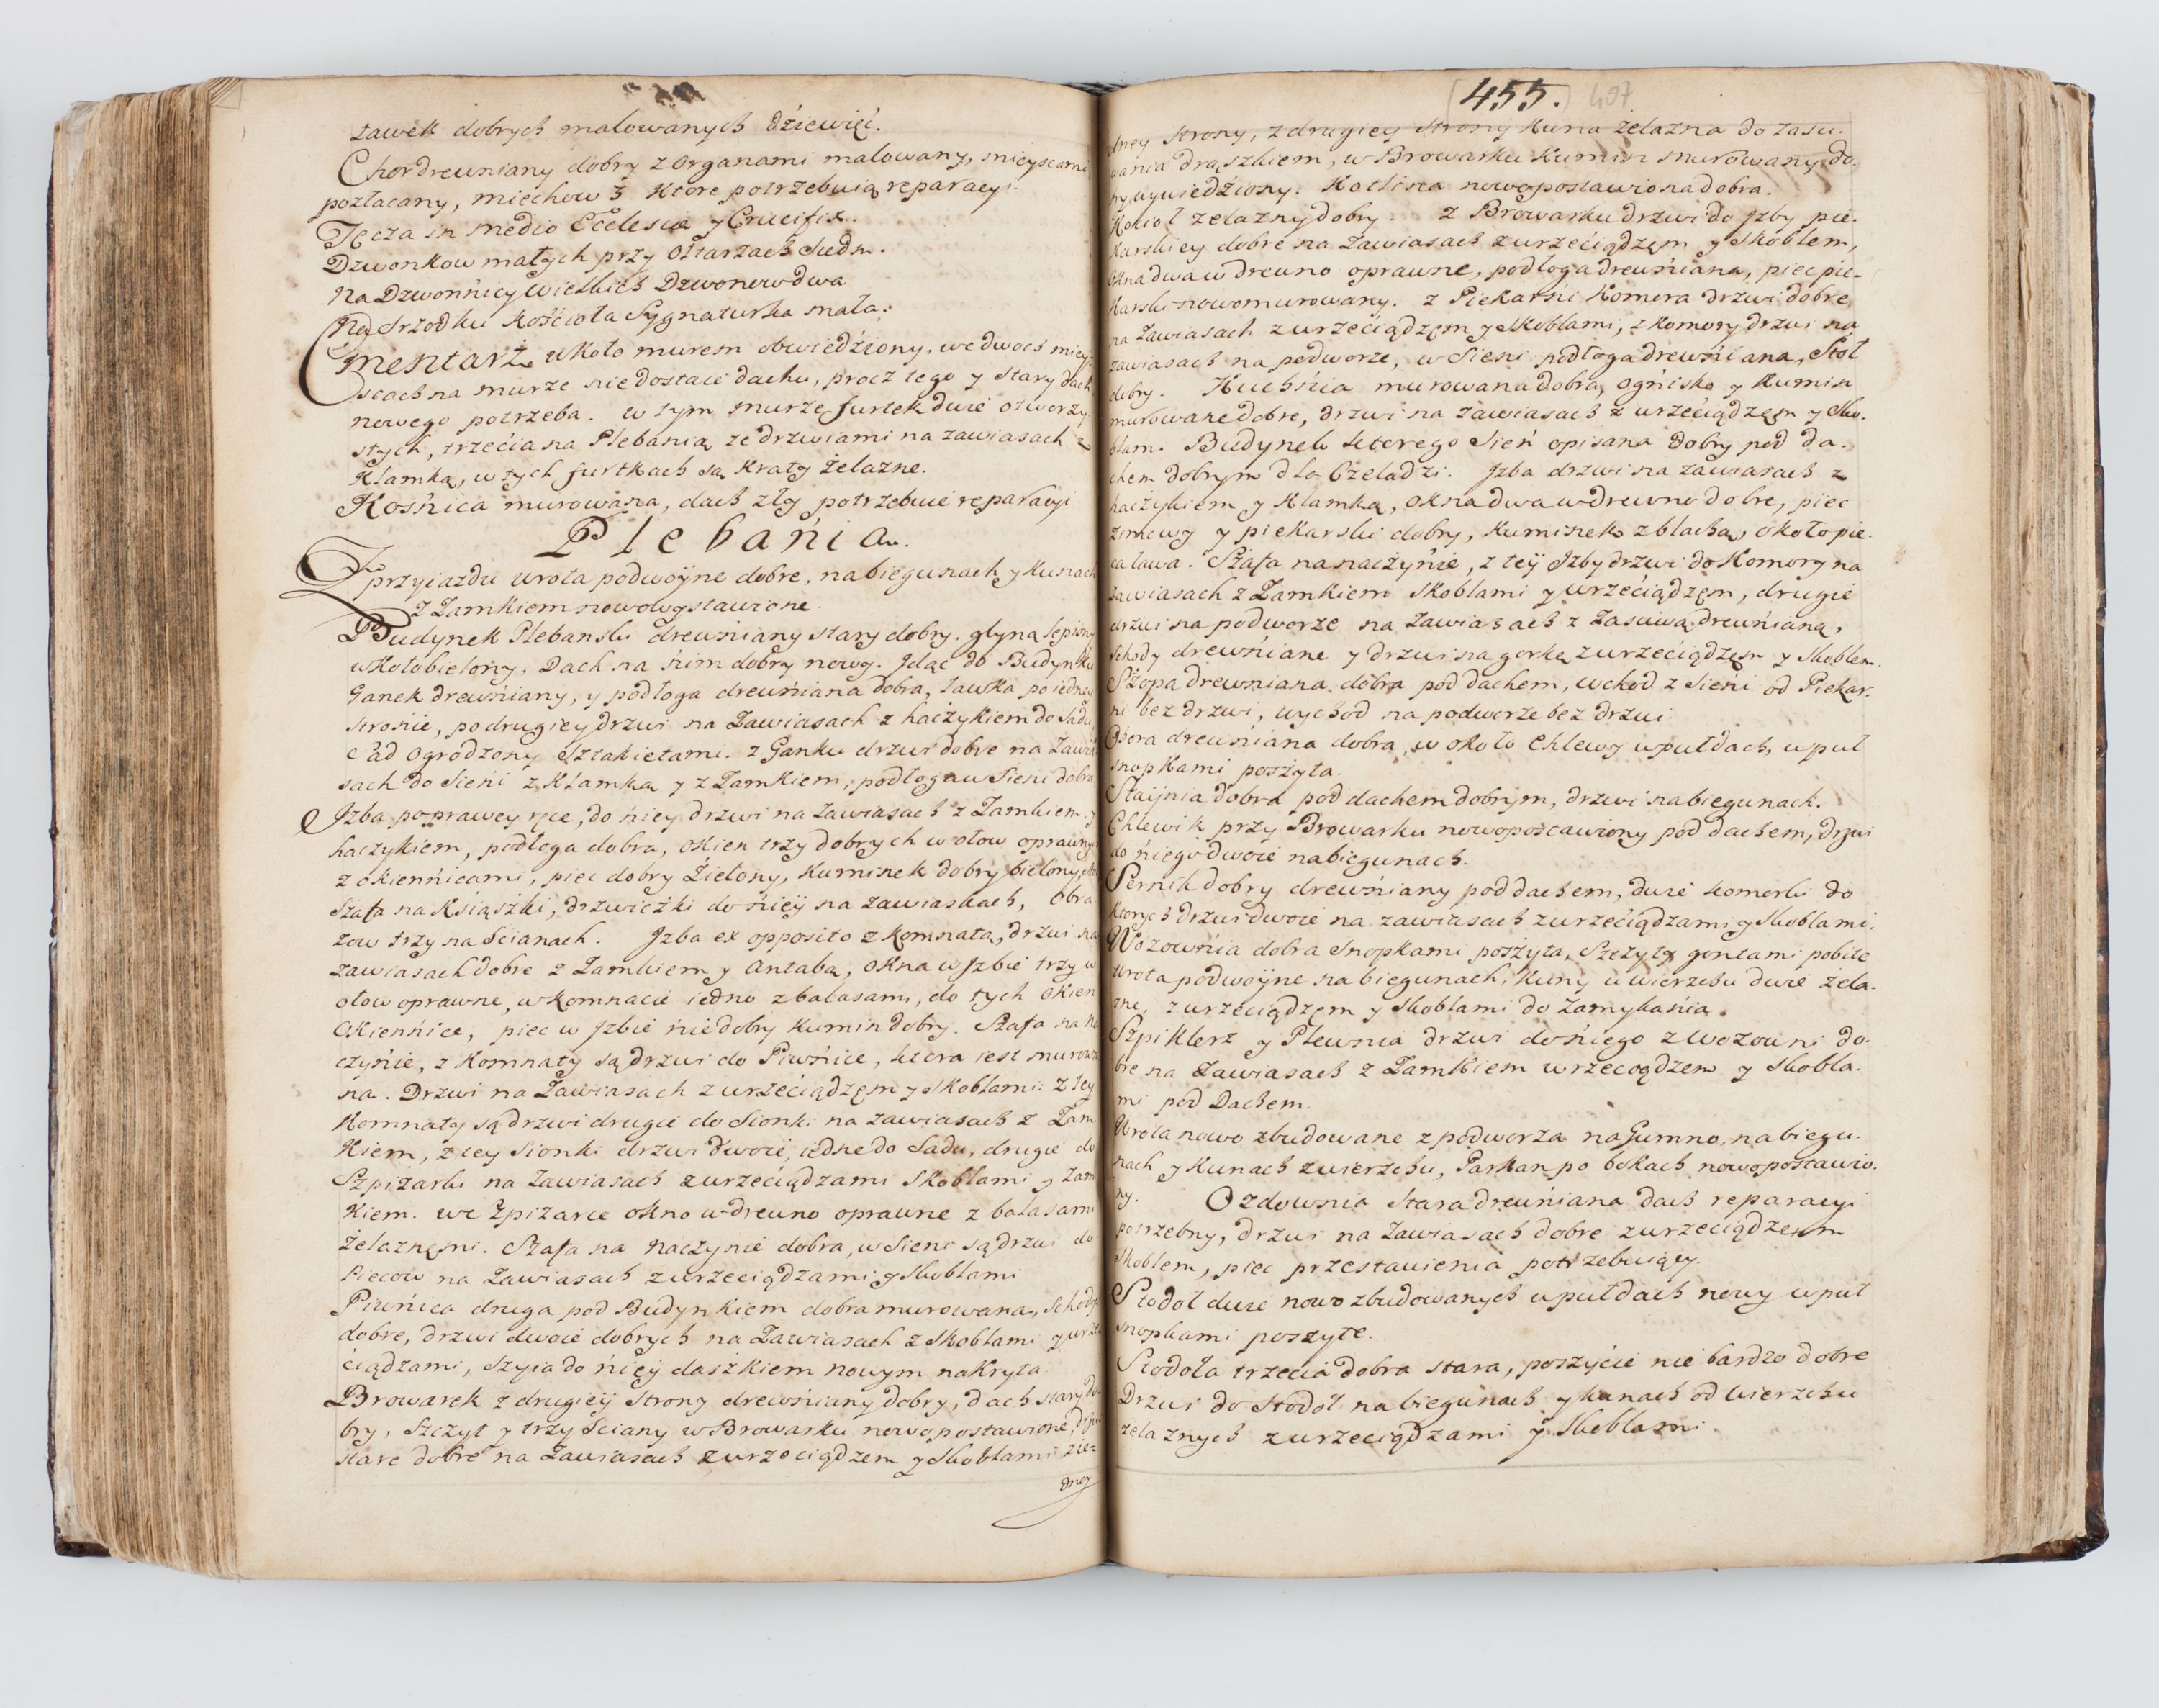 ławek dobrych malowanych dźiewięć.
Chor drewniany dobry z Organami malowany, mieyscami
pozłacany, miechow 3 ktore potrzebuią reparacyi.
Tęcza in medio Ecclesiæ y Crucifix.
Dzwonkow małych przy Ołtarzach siedm.
Na Dzwonnicy Wielkich Dzwonow dwa
Na srzodku Kośćioła Sygnaturka mała.
Cmentarz wkoło murem obwiedźiony, we dwoch miey-
scach na murze niedostaie dachu, procz tego y stary dach
nowego potrzeba. w tym murze furtek dwie otworzy-
stych, trzećia na Plebanią ze drzwiami na zawiasach z
Klamką, w tych furtkach są Kraty żelazne.
Kośnica murowana, dach zły potrzebuie reparacyi
Plebańia.
Z przyiazdu wrota podwoyne dobre, na biegunach y kunach
z Zamkiem nowo wystawione.
Budynek Plebanski drewniany stary dobry. glyną lepiony
wkoło bielony. Dach na nim dobry nowy. Idąc do Budynku
Ganek drewńiany, y podłoga drewniana dobra, ławka po iedney
stronie, po drugiey drzwi na Zawiasach z haczykiem do Sadu,
Sad ogrodzony Sztakietami. z Ganku drzwi dobre na Zawia
sach do Sieni z Klamką y z Zamkiem, podłoga w Sieni dobra
Izba po prawey ręce, do niey drzwi na zawiasach z Zamkiem y
haczykiem, podłoga dobra, okien trzy dobrych w ołow oprawnych
z okiennicami, piec dobry Źielony, Kuminek dobry bielony,
Szafa na Książki, drzwiczki do niey na zawiaskach, Obra
zow trzy na Scianach. Izba ex opposito z Komnatą, drzwi na
zawiasach dobre z Zamkiem y Antabą, okna w Izbie trzy w
ołow oprawne, w Komnacie iedno z balasami, do tych okien
okiennice, piec w Izbie niedobry Kumin dobry. Szafa na na
czynie, z Komnaty są drzwi do Piwnice, ktora iest murowa
na. Drzwi na Zawiasach z wrzećiądzęm y Skoblami: z tey
Komnaty są drzwi drugie do Sionki na zawiasach z Zam
kiem, z tey Sionki drzwi dwoie, iedne do Sadu, drugie do
Szpiżarki na Zawiasach z wrzećiądzami Skoblami y Zam
kiem. we Spiżarce okno w drewno oprawne z balasami
żelaznęmi. Szafa na Naczynie dobra, w Sieni są drzwi do
Piecow na Zawiasach z wrzeciądzami y Skoblami
Piwńica druga pod Budynkiem dobra murowana, Schody
dobre, drzwi dwoie dobrych na Zawiasach z Skoblami y wrze
ćiądzami, Szyia do niey daszkiem nowym nakryta.
Browarek z drugiey strony drewńiany dobry, dach stary do
bry, Szczyt y trzy Sciany w Browarku nowo postawione, drzwi
stare dobre na Zawiasach z wrzećiądzem y Skoblami z ie=
dney
455. 407
dney strony, z drugiey strony Kuna żelazna do zasu-
wania drąszkiem, w Browarku Kumin murowany do-
bry wywiedźiony. Kotlina nowo postawiona dobra.
Kokioł żelazny dobry. z Browarku drzwi do Izby pie-
karskiey dobre na zawiasach z wrzećiądzęm y Skoblem,
okna dwa w drewno oprawne, podłoga drewńiana, piec pie-
karski nowo murowany. z Piekarni Komora drzwi dobre
na Zawiasach z wrzećiądzęm y Skoblami, z Komory drzwi na
zawiasach na podworze, w Sieni podłoga drewniana, Stoł
dobry. Kuchńia murowana dobra, ognisko y Kumin
murowane dobre, drzwi na zawiasach z wrzećiądzęm y Sko-
blami. Budynek ktorego Sień opisana dobry pod da-
chem dobrym dla Czeladzi. Izba drzwi na zawiasach z
haczykiem y Klamką, okna dwa w drewno dobre, piec
zimowy y piekarski dobry, Kuminek z blachą, około pie-
ca ława. Szafa na naczynie, z tey Izby drzwi do Komory na
zawiasach z Zamkiem Skoblami y wrzećiądzęm, drugie
drzwi na podworze na Zawiasach z Zasuwą drewńianą,
Schody drewńiane y drzwi na gorkę z wrzećiądzęm y Skoblem.
Szopa drewniana dobra pod dachem, wchod z Sieni od Piekar-
ni bez drzwi, wychod na podworze bez drzwi
Obora drewńiana dobra, w około Chlewy w puł dach, w puł
snopkami poszyta.
Stayńia dobra pod dachem dobrym, drzwi na biegunach.
Chlewik przy Browarku nowo postawiony pod dachem, drzwi
do niego dwoie na biegunach.
Sernik dobry drewńiany pod dachem, dwie komorki do
ktorych drzwi dwoie na zawiasach z wrzećiądzami y Skoblami.
Wozownia dobra Snopkami poszyta, Szczyty gontami pobite
wrota podwoyne na biegunach, Kuny u wierzchu dwie żela-
zne, z wrzećiądzęm y Skoblami do zamykania.
Szpiklerz y Plewnia drzwi do niego z wozowni do-
bre na Zawiasach z Zamkiem wrzecogdzem y Skobla-
mi pod Dachem.
Wrota nowo zbudowane z podworza na Gumno, na biegu-
nach y Kunach z wierzchu, Parkan po bokach nowo postawio-
ny. Ozdownia Stara drewńiana dach reparacyi
potrzebny, drzwi na Zawiasach dobre z wrzeciądzem
Skoblem, piec przestawienia potrzebuiący.
Stodoł dwie nowo zbudowanych w puł dach nowy w puł
snopkami poszyte.
Stodoła trzecia dobra stara, poszycie nie bardzo dobre
Drzwi do Stodoł na biegunach y kunach od Wierzchu
żelaznych z wrzeciądzami y Skoblami.